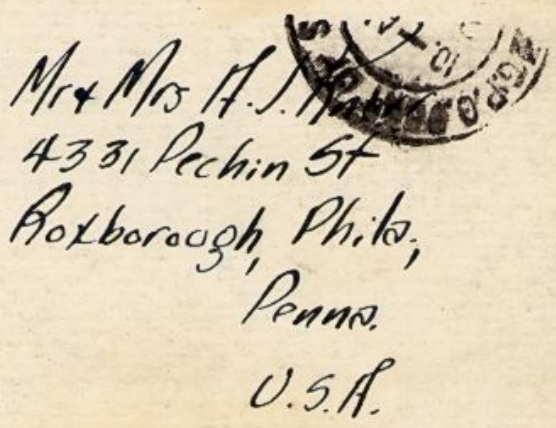 Mr & Mrs A. J.
4331 Pechin St
Roxborough, Phila.,
Penna.
U.S.A.